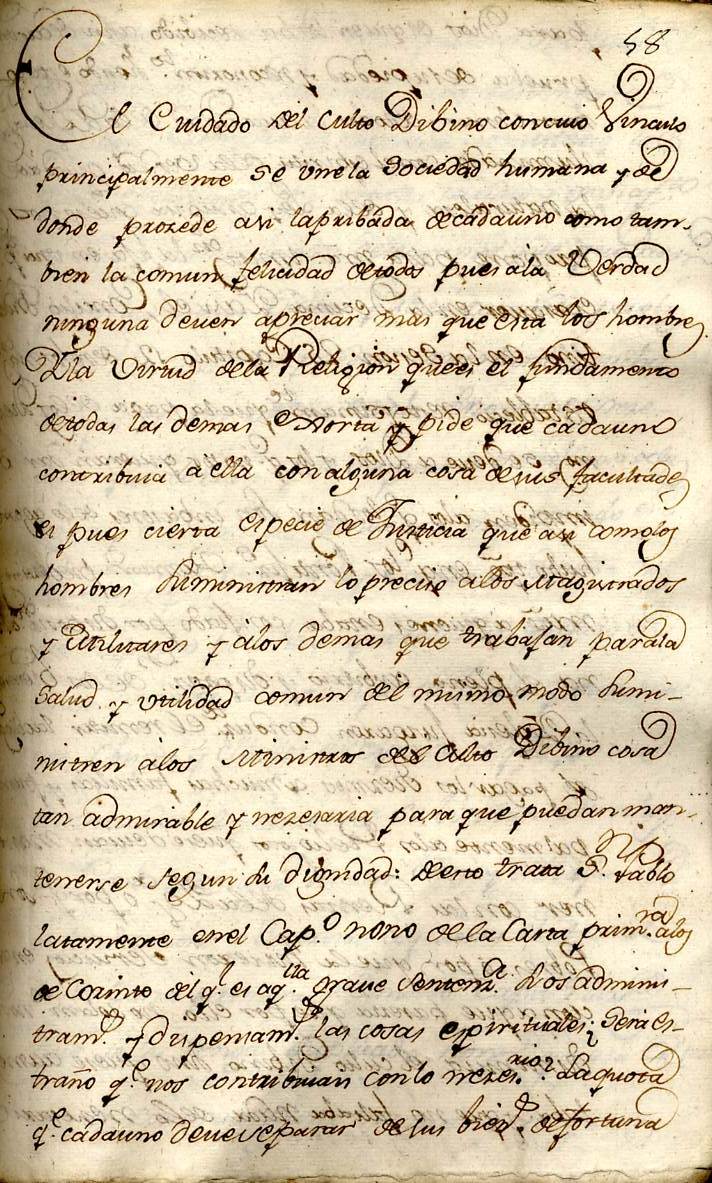 58
El Cuidado del Culto Dibino con cuio Vinculo
principalmente se vne la Sociedad humana y de
donde prozede asi la pribada de cada uno como tam-
bien la comun felicidad de todos pues a la Verdad
ninguna deven apreciar mas que esta los hombres
A la Virtud de la Religion que es el fundamento
de todas las demas exorta y pide que cada uno
contribuia a ella con alguna cosa de sus facultades
es pues cierta especie de Justicia que asi como los
hombres suministran lo preciso a los Magistrados
y Militares y a los demas que trabajan para la
Salud y utilidad comun del mismo modo sumi-
nistren a los Ministros del Culto Dibino cosa
tan admirable y nezesaria para que puedan man-
tenerse segun su dignidad: de esto trata S. Pablo
latamente en el Cap.º nono de la Carta prim.ra a los
de Corinto del q.l es aq.lla grave Sentenz.a: Si os adminis-
tram.s y dispensam.s las cosas espirituales; Sera es-
traño q.e nos contribuian con lo nezes.rio? La quota
q.e cada uno deve separar de sus bien.s de fortuna